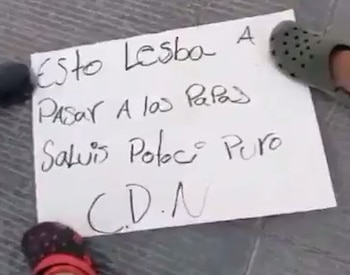 Esto Lesba A
Pasar A los Papas
Saluis Potoci Puro
C.D.N